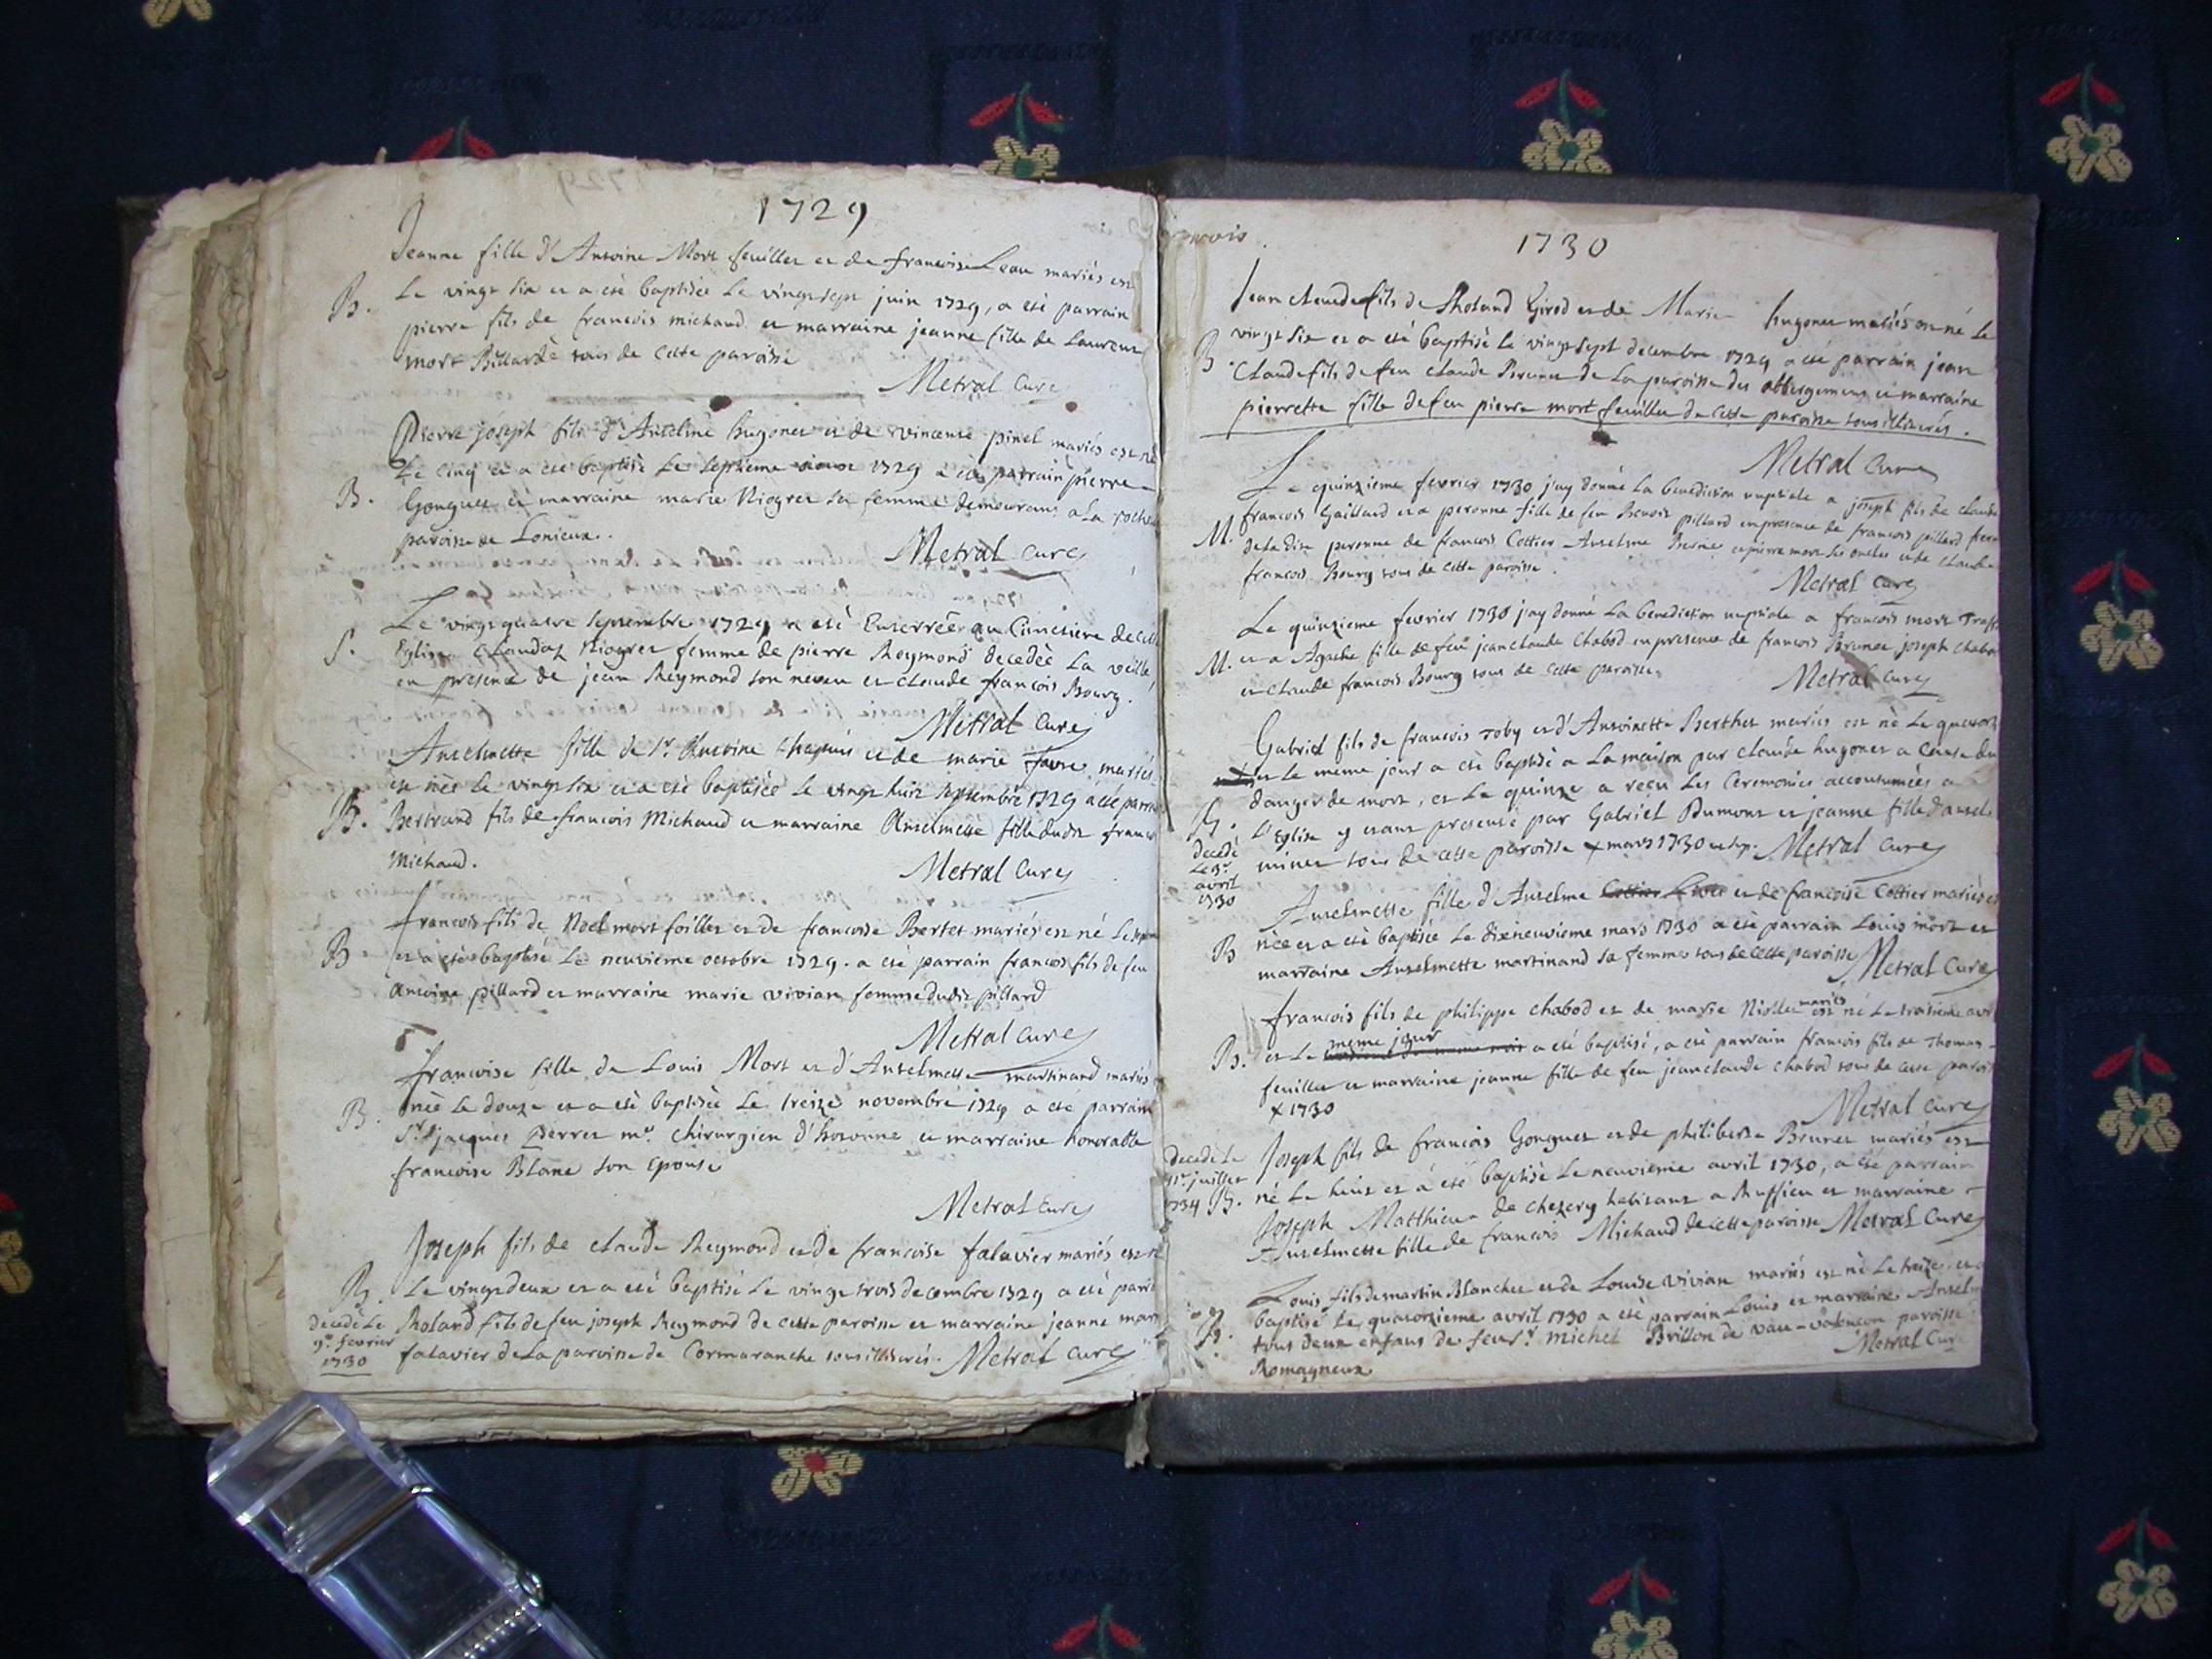 1729
Jeanne fille d'Antoine Mort feuillet et de francoise Leau mariés est
B. Le vingt six et a eté baptisée Le vingt sept juin 1729, a eté parrain
pierre fils de francois michaud et marraine jeanne fille de Laurent
mort Billarde tous de cette paroisse
Metral Curé
Pierre joseph fils d'Anselme hugonet et de vincente pinel mariés est né
Le cinq et a eté baptisé Le septieme 1729 a eté parrain pierre
B. Gonguet et marraine marie Niogret sa femme demeurans a La roche
paroisse de Lonieux.
Metral Curé
Le vingt quatre septembre 1729 a eté Enterrée au Cimetiere de cette
S. Eglise Claudaz Niogret femme de pierre Reymond decedée La veille
en presence de jean Reymond son neveu et claude françois Bourg.
Metral Curé
Anselmette fille de Sr. Antoine Chapuis et de marie favre mariés
est née le vingt six et a eté baptisée le vingt huit septembre 1729 a eté parrain
B. Bertrand fils de francois Michaud et marraine Anselmette fille dudit franc
Michaud.
Metral Curé
francois fils de Noel mort foillet et de francoise Bertet mariés est né Le
B et a eté baptisé Le neuvieme octobre 1729. a eté parrain francois fils de feu
Antoine pillard et marraine marie vivian femme dudit pillard
Metral Curé
francoise fille de Louis Mort et d'Anselmette martinand mariés
B. née Le douze et a eté baptisée Le treize novembre 1729 a eté parrain
Sr. jacques perret me. chirurgien d'hotonne et marraine honorable
francoise Blanc son Epouse
Metral Curé
Joseph fils de claude Reymond et de francoise falavier mariés est n
B. Le vingt deux et a eté baptisé Le vingt trois decembre 1729 a eté par
decedé Le Roland fils de feu joseph Reymond de cette paroisse et marraine jeanne mar
9e. fevrier falavier de La paroisse de Cormaranche tous illiterés. Metral Curé
1730
1730
Jean claude fils de Rholand Girod et de Marie hugonet mariés est né Le
vingt six et a eté baptisé Le vingt sept decembre 1729 a eté parrain jean
B Claude fils de feu claude Brunet de La paroisse des Abbergemens et marraine
pierrette fille de feu pierre mort feuillet de cette paroisse tous illiterés.
Metral Curé
Le quinzieme fevrier 1730 j'ay donné La benediction nuptiale a joseph fils de claude
francois Gaillard et a peronne fille de feu Benoit pillard en presence de francois pillard frere
M. de La dite peronne de francois Cottier Anselme et pierre mort ses oncles et de claude
francois Bourg tous de cette paroisse.
Metral Curé
Le quinzieme fevrier 1730 j'ay donné La benediction nuptiale a francois mort
M. et a Agathe fille de feu jean claude Chabod en presence de francois Brunet joseph Chabod
et claude francois Bourg tous de cette paroisse.
Metral Curé
Gabriel fils de francois Toby et d'Antoinette Berthet mariés est né Le quatorze
et le meme jour a eté baptisé a La maison par claude hugonet a cause du
danger de mort, et Le quinze a reçu Les Ceremonies accoutumées a
B. L'Eglise y etant presenté par Gabriel Dumont et jeanne fille d'ansel
decedé minet tous de cette paroisse x mars 1730 Metral Curé
Le 3e.
avril
1730
Anselmette fille d'Anselme Cottier et de francoise Cottier mariés est
B née et a eté baptisée Le dixneuvieme mars 1730 a eté parrain Louis mort et
marraine Anselmette martinand sa femme tous de cette paroisse Metral Curé
mariés
francois fils de philippe chabod et de marie Niollet est né Le troisieme avril
meme jour
B. et Le a eté baptisé, a eté parrain francois fils de Thomas
feuillet et marraine jeanne fille de feu jean claude chabod tous de cette paroisse
x 1730
Metral Curé
decedé Le Joseph fils de francois Gonguet et de philiberte Brunet mariés est
juillet
1734 B. né Le huit et a eté baptisé Le neuvieme avril 1730, a eté parrain
Joseph Matthieu de chezery habitant a Ruffieu et marraine
Anselmette fille de francois Michaud de cette paroisse Metral Curé
Louis fils de martin Blanchet et de Louise vivian mariés est né Le treize et a
B. baptisé Le quatorzieme avril 1730 a eté parrain Louis et marraine Anselm
tous deux enfans de feu sr. michel Brillon de paroisse
Romagneux
Metral Curé